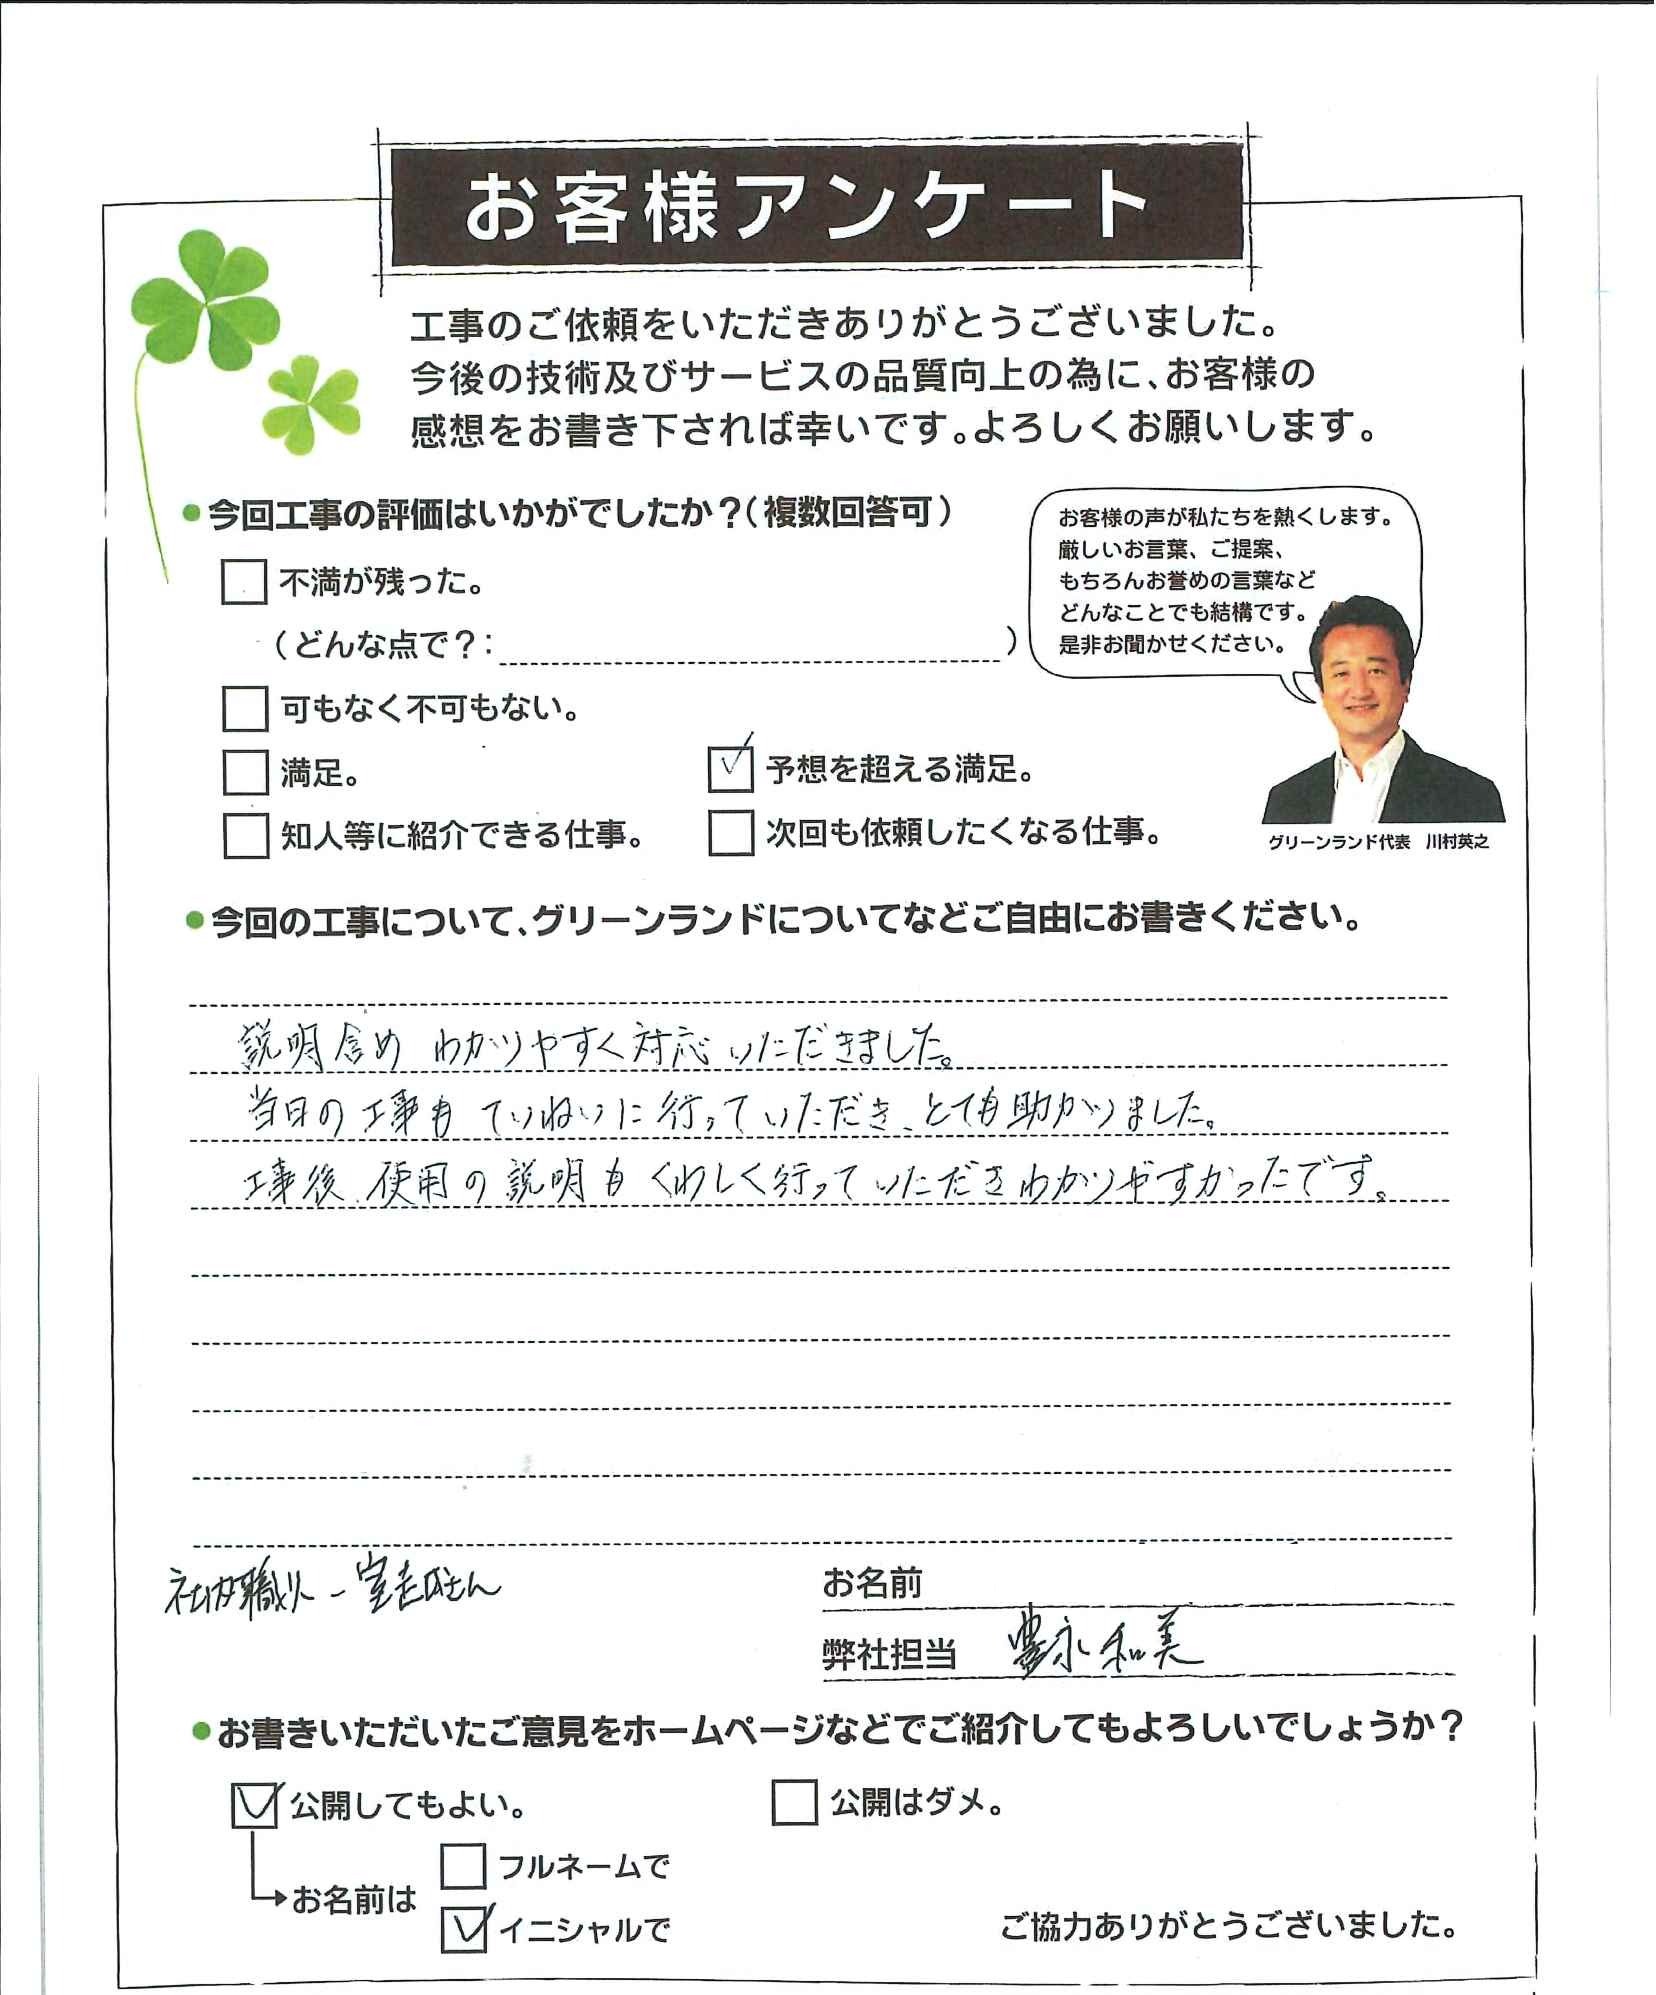 お客様アンケート
工事のご依頼をいただきありがとうございました。
今後の技術及びサービスの品質向上の為に、お客様の
感想をお書き下されば幸いです。よろしくお願いします。
●今回工事の評価はいかがでしたか？（複数回答可）
お客様の声が私たちを熱くします。
厳しいお言葉、ご提案、
もちろんお誉めの言葉など
どんなことでも結構です。
是非お聞かせください。
不満が残った。
（どんな点で？：　　　）
可もなく不可もない。
満足。
予想を超える満足。
知人等に紹介できる仕事。
次回も依頼したくなる仕事。
グリーンランド代表　川村英之
●今回の工事について、グリーンランドについてなどご自由にお書きください。
説明含め わかりやすく対応いただきました。
当日の工事も ていねいに行っていただき、とても助かりました。
工事後、使用の説明もくわしく行っていただきわかりやすかったです。
社内職人-
さん
お名前
弊社担当 豊永和美
●お書きいただいたご意見をホームページなどでご紹介してもよろしいでしょうか？
公開してもよい。
公開はダメ。
フルネームで
お名前は
イニシャルで
ご協力ありがとうございました。